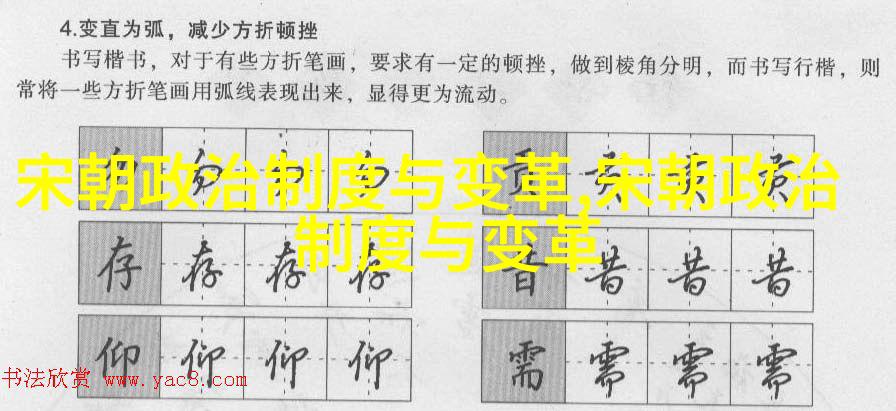 4.变直为弧，减少方折顿挫
书写楷书，对于有些方折笔画，要求有一定的顿挫，做到棱角分明，而书写行楷，则
常将一些方折笔画用弧线表现出来，显得更为流动。
宋朝政治制度与变革,宋朝政治
制度与变革
存 存 存 存
昔 昔 昔 昔
仰 仰 仰 仰
需 需 需 需
书法欣赏 www.yac8.com